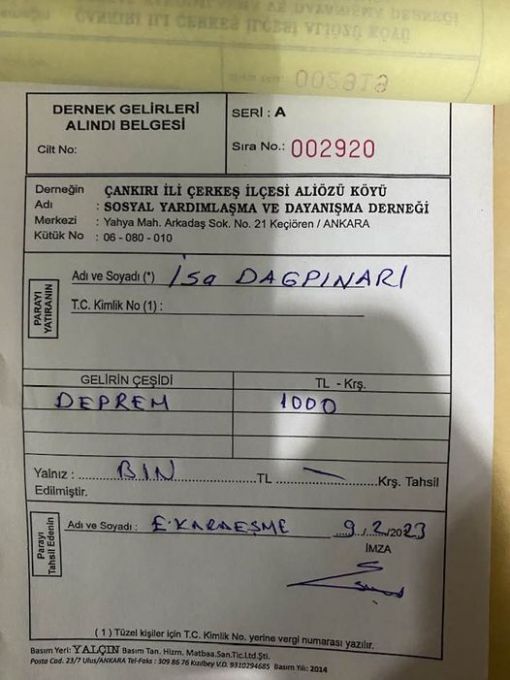 DERNEK GELİRLERİ
ALINDI BELGESİ
Cilt No:
SERİ : A
Sıra No.: 002920
Derneğin Adı : ÇANKIRI İLİ ÇERKEŞ İLÇESİ ALİÖZÜ KÖYÜ
SOSYAL YARDIMLAŞMA VE DAYANIŞMA DERNEĞİ
Merkezi : Yahya Mah. Arkadaş Sok. No. 21 Keçiören / ANKARA
Kütük No : 06 - 080 - 010
PARAYI YATIRANIN
Adı ve Soyadı (*) İsa DAGPINARI
T.C. Kimlik No (1) :
GELİRİN ÇEŞİDİ TL - Krş.
DEPREM 1000
Yalnız : BIN TL — Krş. Tahsil
Edilmiştir.
Parayı Tahsil Edenin
Adı ve Soyadı : E.KARAEŞME 9/2/2023
İMZA
( 1 ) Tüzel kişiler için T.C. Kimlik No. yerine vergi numarası yazılır.
Basım Yeri: YALÇIN Basım Tan. Hizm. Matbaa.San.Tic.Ltd.Şti.
Posta Cad. 23/7 Ulus/ANKARA Tel-Faks : 309 86 76 Kızılbey V.D. 9310294685 Basım Yılı: 2014